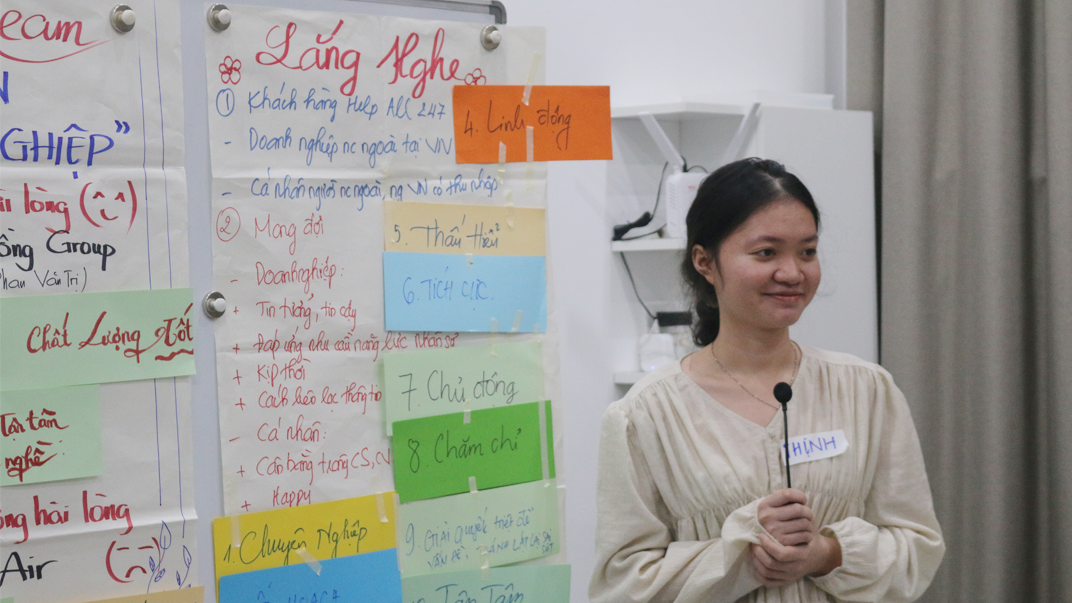 eam
N
GHIỆP”
lòng
Group
Phan Văn Trị)
Chất Lượng Tốt
Tận tâm
nghề
hài lòng
Air
Lắng Nghe
① Khách hàng Help All 247
- Doanh nghiệp nc ngoài tại VN
- Cá nhân người nc ngoài, ng VN có thu nhập
② Mong đợi
- Doanh nghiệp:
+ Tin tưởng, tin cậy
+ Đáp ứng nhu cầu năng lực nhân sự
+ Kịp thời
+ Cách liên lạc thông tin
- Cá nhân:
+ Cân bằng trong CS, CV
+ Happy
1. Chuyên Nghiệp
4. Linh động
5. Thấu Hiểu
6. TÍCH CỰC
7. Chủ động
8. Chăm chỉ
9. Giải quyết triệt để
VẤN ĐỀ, LẶP LẠI
Tận Tâm
THỊNH